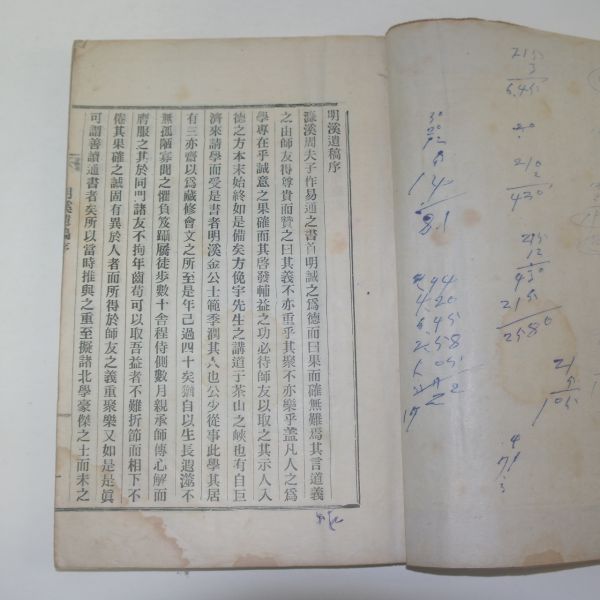 明溪遺稿序
濂溪周夫子作易通之書首明誠之爲德而曰果而確無難焉其言道義
之由師友得尊貴而贊之曰其義不亦重乎其聚不亦樂乎蓋凡人之爲
學專在乎誠意之果確而其啓發輔益之功必待師友以取之其示人入
德之方本末始終如是備矣方俛宇先生之講道于茶山之峽也有自巨
濟來請學而受是書者明溪金公士範季潤其人也公少從事此學其居
有三亦齋以爲藏修會文之所至是年已過四十矣猶自以生長遐澨不
無孤陋寡聞之懼負笈躡屩徒步數十舍程侍側數月親承師傳心解而
膺服之其於同門諸友不拘年齒苟可以取吾益者不難折節而相下不
倦其果確之誠固有異於人者而所得於師友之義重聚樂又如是是眞
可謂善讀通書者矣所以當時推與之重至擬諸北學豪傑之士而未之
明溪遺稿序
一
215
3
6.45
210
2
420
215
12
430
215
2580
21
5
105
30
14
81
4.20
6.45
2.58
1.05
17